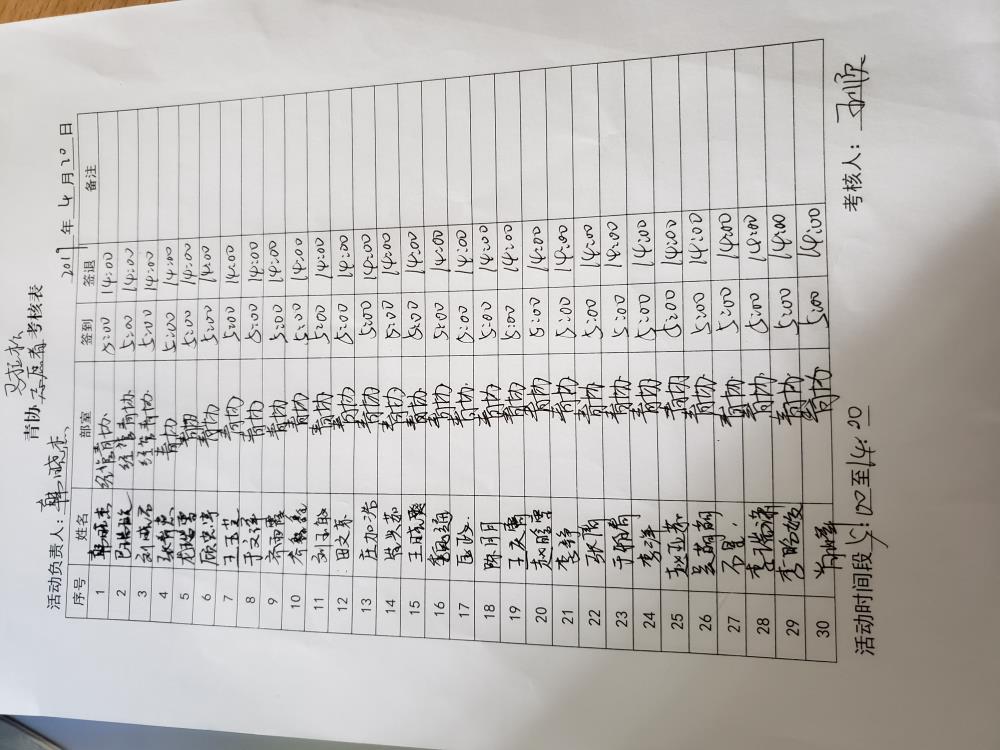 马拉松
青协志愿者考核表
活动负责人：韩晓杰 2019年4月20日
序号 姓名 部室 签到 签退 备注
1 韩晓杰 经管青协 5:00 14:00
2 经管青协 5:00 14:00
3 刘成君 经管青协 5:00 14:00
4 青协 5:00 14:00
5 青协 5:00 14:00
6 青协 5:00 14:00
7 王玉芝 青协 5:00 14:00
8 于文泽 青协 5:00 14:00
9 齐雨露 青协 5:00 14:00
10 青协 5:00 14:00
11 刘子敏 青协 5:00 14:00
12 田文乔 青协 5:00 14:00
13 庄加浩 青协 5:00 14:00
14 青协 5:00 14:00
15 王晓爽 青协 5:00 14:00
16 青协 5:00 14:00
17 青协 5:00 14:00
18 陈月月 青协 5:00 14:00
19 青协 5:00 14:00
20 赵晗雪 青协 5:00 14:00
21 李静 青协 5:00 14:00
22 张雨 青协 5:00 14:00
23 青协 5:00 14:00
24 李洋 青协 5:00 14:00
25 赵亚茹 青协 5:00 14:00
26 吴萌萌 青协 5:00 14:00
27 青协 5:00 14:00
28 青协 5:00 14:00
29 李晗姣 青协 5:00 14:00
30 青协 5:00 14:00
活动时间段 5:00至14:00 考核人：